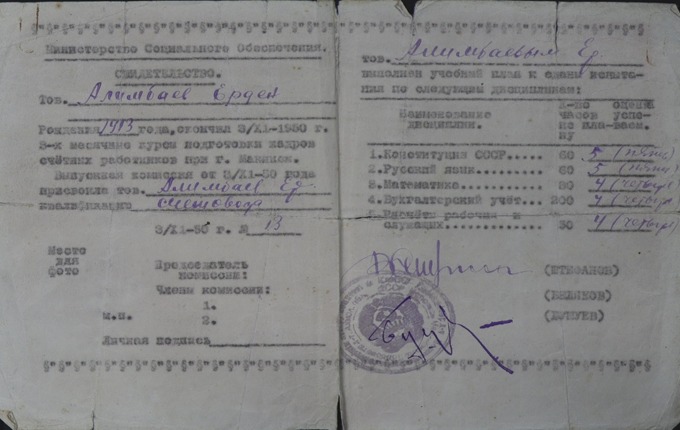 Министерство Социального Обеспечения.
СВИДЕТЕЛЬСТВО.
Тов. Алимбаев Ерден
Рождения 1913 года, окончил 3/XI-1950 г.
3-х месячные курсы подготовки кадров
счётных работников при г.
Выпускная комиссия от 3/XI-50 года
присвоила тов. Алимбаев Ер-
квалификацию счетовода
3/XI-50 г. № 13
Место
для
фото
Председатель
комиссии:
Члены комиссии:
1.
м.п. 2.
Личная подпись
тов. Алимбаевым Ер.
выполнен учебный план и сданы испыта-
ния по следующим дисциплинам:
Наименование
дисциплин.
к-во оценка
часов успе-
по пла-ваем.
ну
1. Конституция СССР..... 60 5 (пять)
2. Русский язык......... 60 5 (пять)
3. Математика........... 80 4 (четыре)
4. Бухгалтерский учёт... 200 4 (четыре)
5. Расчёты рабочих и
служащих............. 30 4 (четыре)
(ШТЕФАНОВ)
(БЕЛЯКОВ)